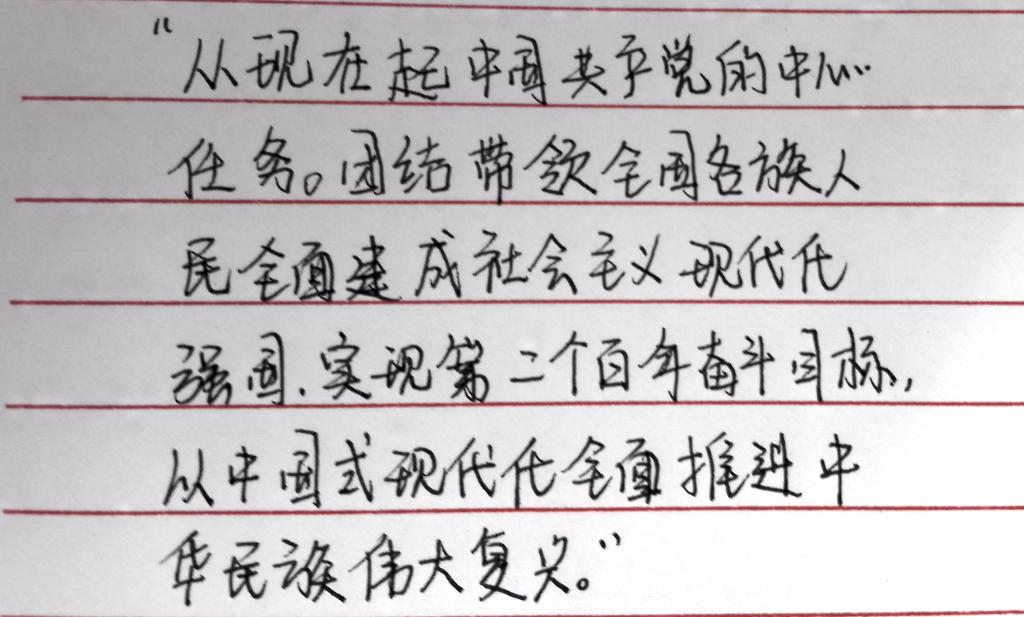 “从现在起中国共产党的中心
任务。团结带领全国各族人
民全面建成社会主义现代化
强国.实现第二个百年奋斗目标,
以中国式现代化全面推进中
华民族伟大复兴。”